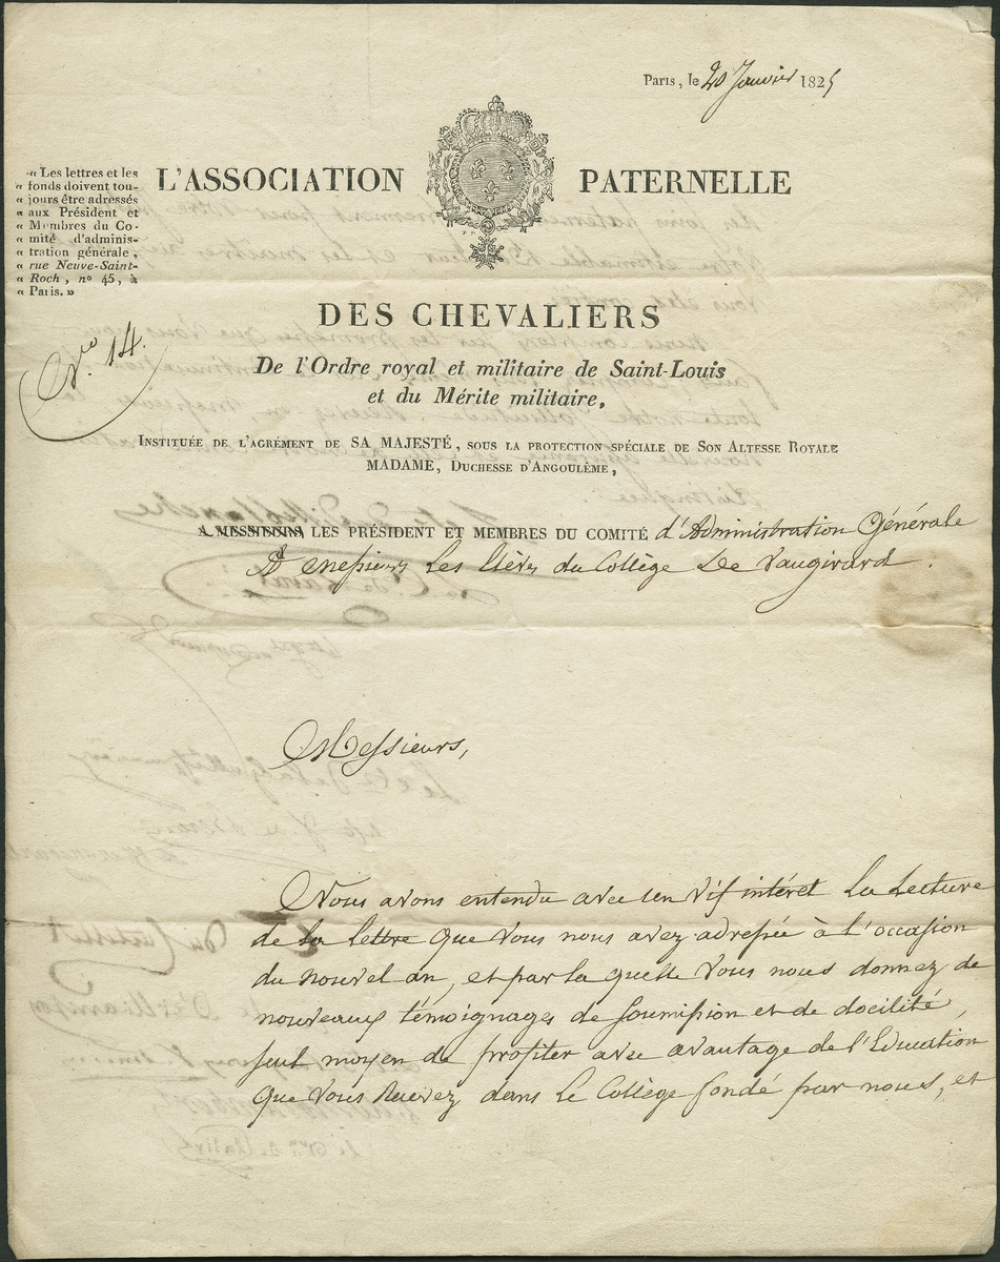 Paris, le 20 Janvier 1825
« Les lettres et les
« fonds doivent tou-
« jours être adressés
« aux Président et
« Membres du Co-
« mité d'adminis-
« tration générale,
« rue Neuve-Saint-
« Roch, nº 45, à
« Paris. »
L'ASSOCIATION PATERNELLE
DES CHEVALIERS
Nro. 14.
De l'Ordre royal et militaire de Saint-Louis
et du Mérite militaire,
Instituée de l'agrément de SA MAJESTÉ, sous la protection spéciale de Son Altesse Royale
MADAME, Duchesse d'Angoulême,
A MESSIEURS, LES PRÉSIDENT ET MEMBRES DU COMITÉ d'Administration Générale
A Messieurs Les Elèves du Collège De Vaugirard.
Messieurs,
Nous avons entendu avec un vif intéret La Lecture
de la lettre que Vous nous avez adressée à l'occasion
du nouvel an, et par la quelle Vous nous donnez de
nouveaux témoignages de soumission et de docilité,
seul moyen de profiter avec avantage de l'Education
que Vous Recevez dans Le Collège fondé par nous, et